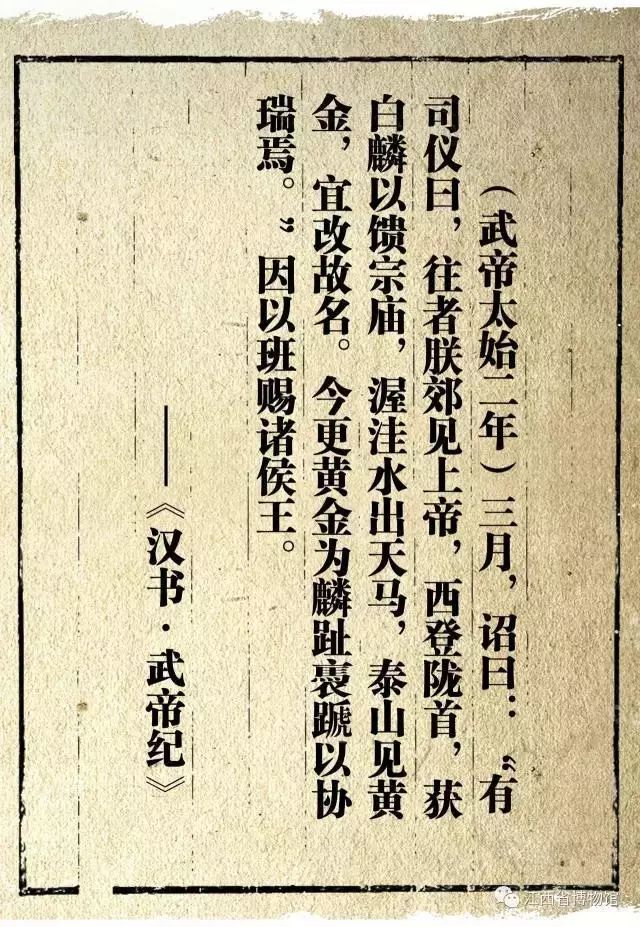 （武帝太始二年）三月，诏曰：“有
司仪曰，往者朕郊见上帝，西登陇首，获
白麟以馈宗庙，渥洼水出天马，泰山见黄
金，宜改故名。今更黄金为麟趾褭蹏以协
瑞焉。”因以班赐诸侯王。
——《汉书·武帝纪》
江西省博物馆